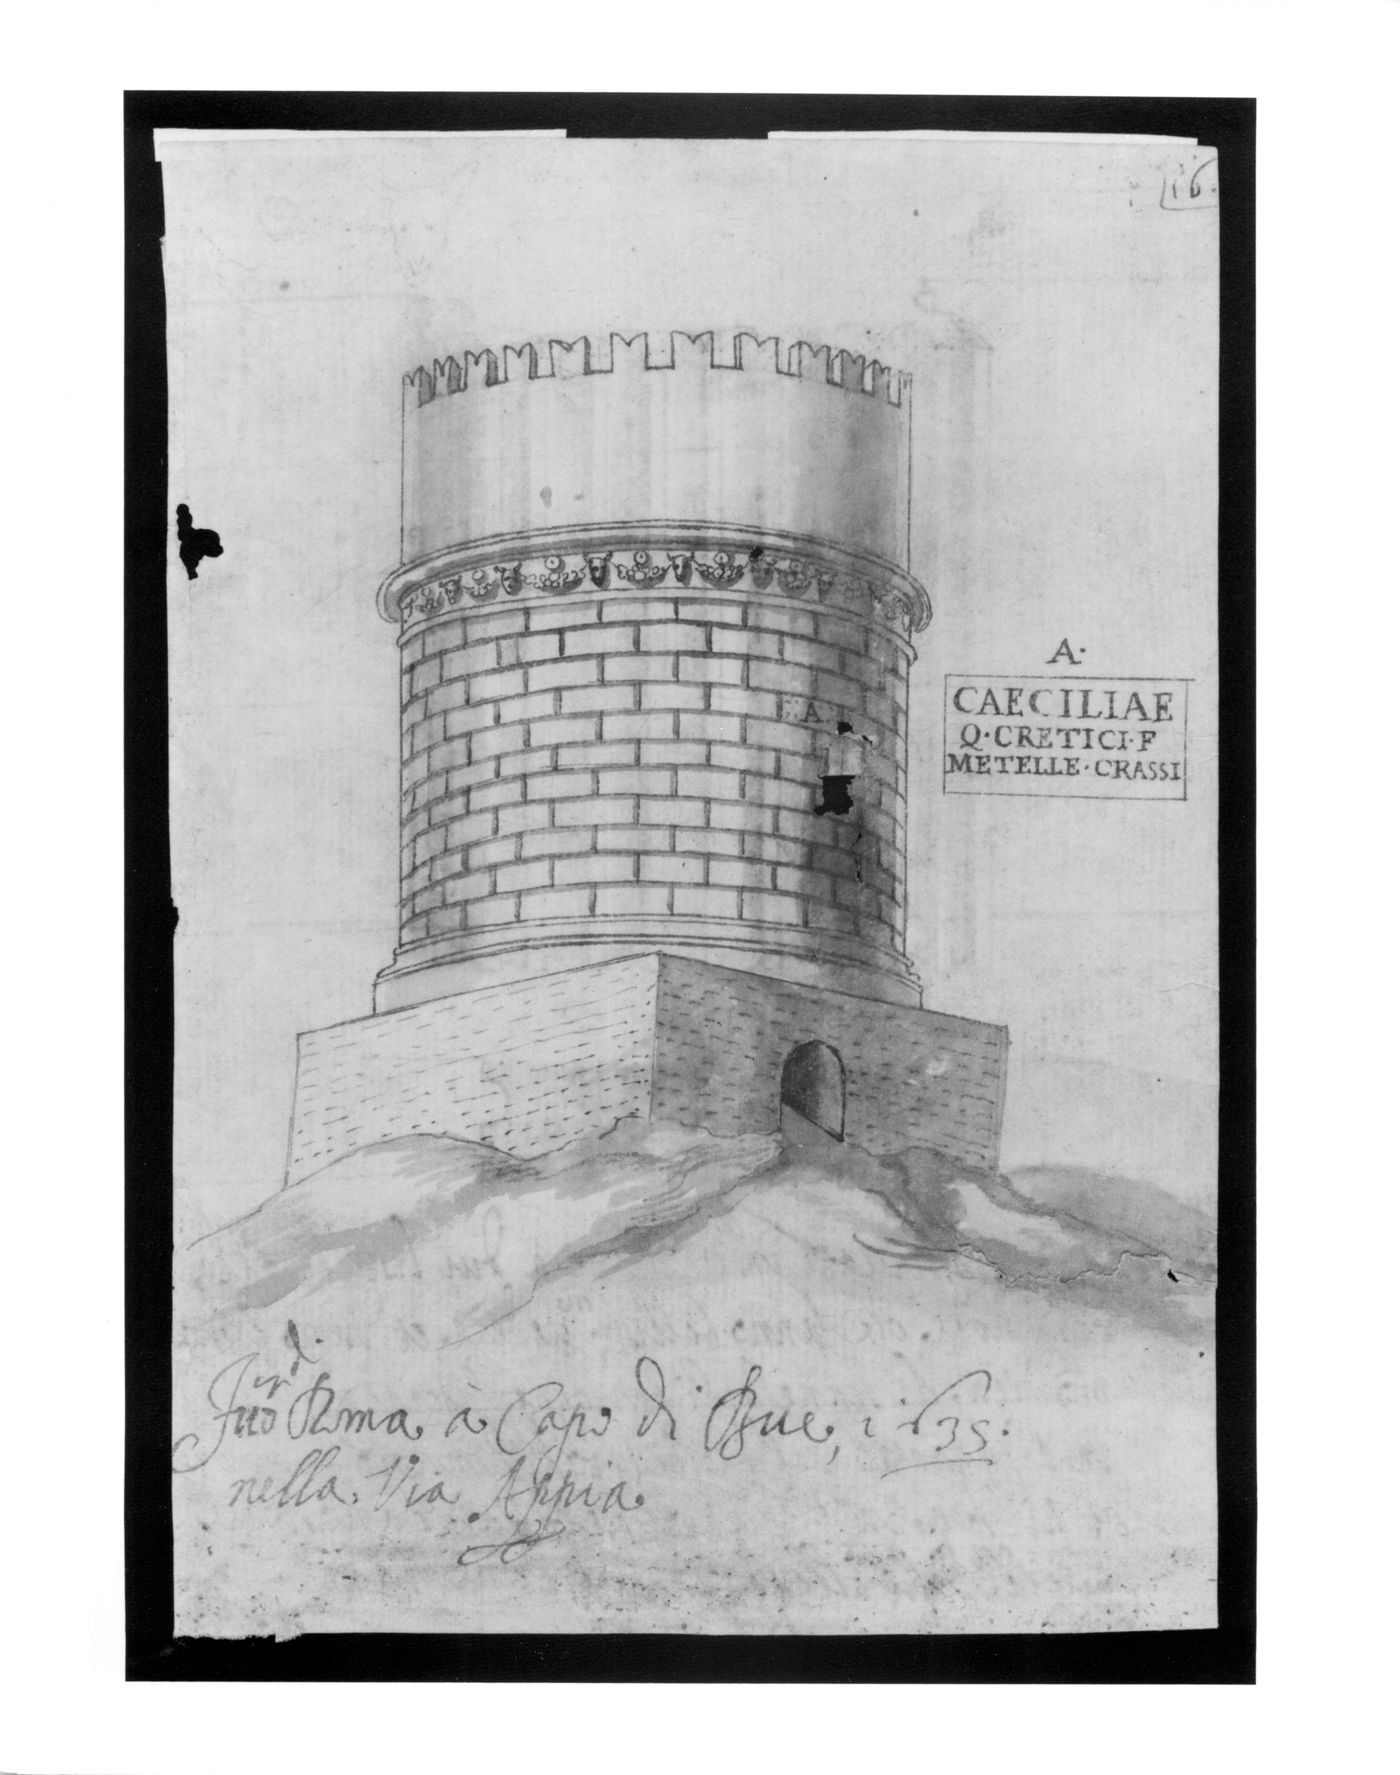 16.
A.
CAECILIAE
Q·CRETICI·F
METELLE·CRASSI
A
Roma à Capo di Bue, 1635.
nella Via Appia